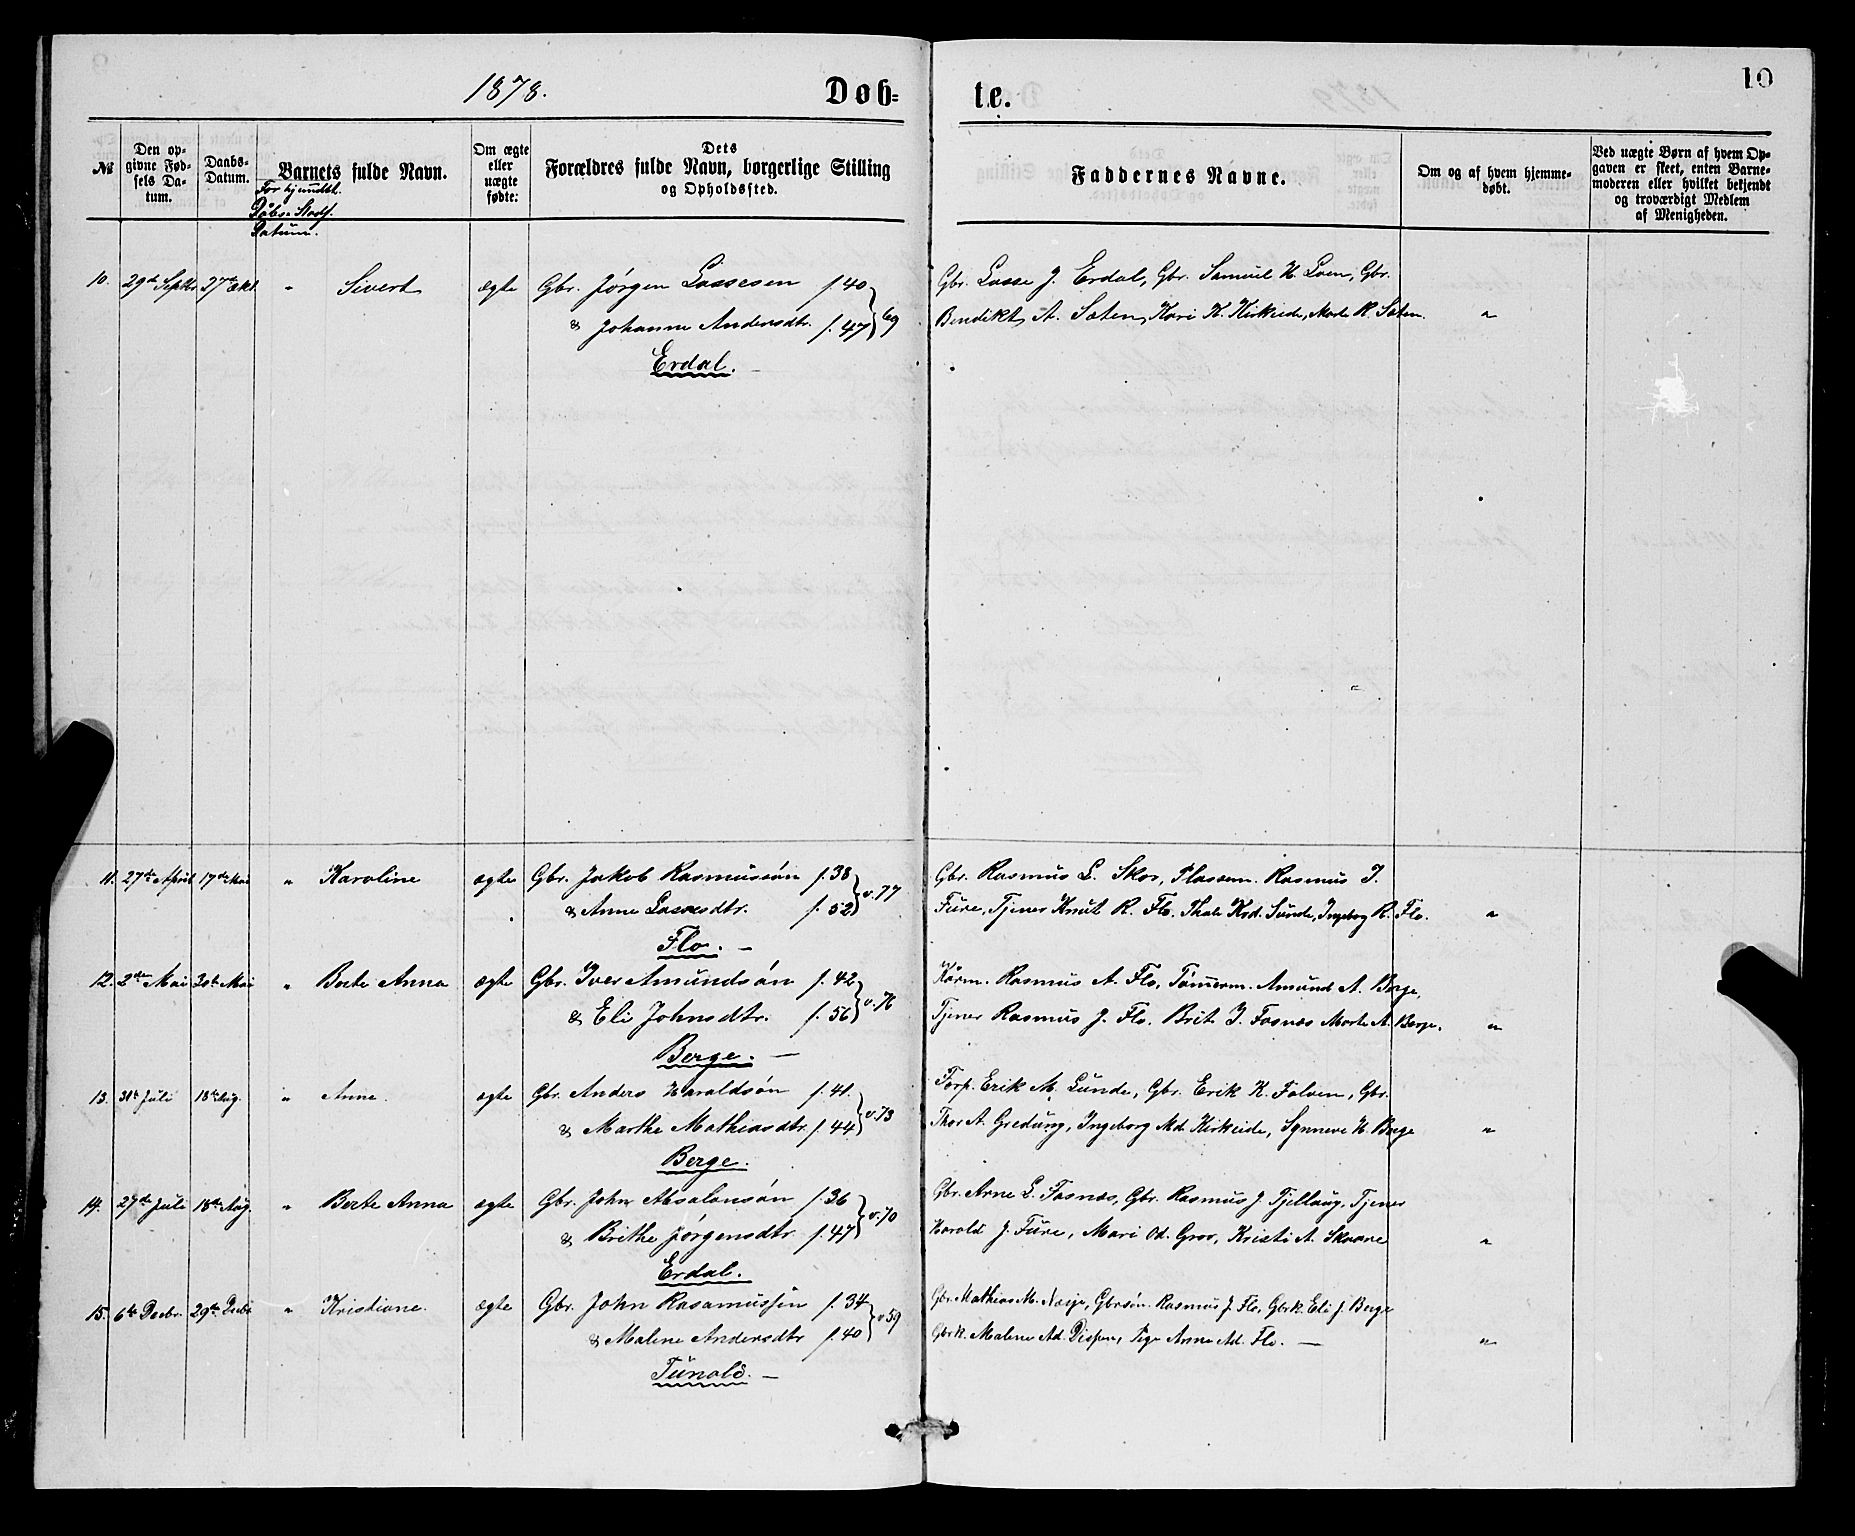 1878.
Døb=
te.
10
№
Den op-
givne Fød-
sels Da-
tum.
Daabs-
Datum.
Barnets fulde Navn.
Døbs-Stadf.
Datum.
Om ægte
eller
uægte
fødte:
Dets
Forældres fulde Navn, borgerlige Stilling
og Opholdssted.
Faddernes Navne.
Om og af hvem hjemme-
døbt.
Ved uægte Børn af hvem Op-
gaven er skeet, enten Barne-
moderen eller hvilket bekjendt
og troværdigt Medlem
af Menigheden.
10. 29de Septbr 27de Okt. " Sivert ægte Gbr. Jørgen Lassesen f. 40
& Johanne Andersdtr. f. 47 } 69
Erdal. —
Gbr. Lasse J. Erdal, Gbr. Samuel K. Loen, Gbr.
Bendikt A. Sæten, Kari K. Kirkeide, Marte R. Sæten. "
11. 27de April 17de Mai " Karoline ægte Gbr. Jakob Rasmussøn f. 38
& Anne Lassesdtr. f. 52 } v. 77
Flo. —
Gbr. Rasmus L. Skor, Plassem. Rasmus I.
Fure, Tjener Knut R. Flo, Thale Kd. Sunde, Ingeborg R. Flo. "
12. 2den Mai 30te Mai " Berte Anna ægte Gbr. Iver Amundsøn f. 42
& Eli Johnsdtr. f. 56 } v. 76
Berge. —
Kårm. Rasmus A. Flo, Tømmerm. Amund A. Berge,
Tjener Rasmus J. Flo, Brit I. Fosnæs Marte A. Berge. "
13. 31te Juli 18de Aug. " Anne. ægte Gbr. Anders Haraldsøn f. 41.
& Marthe Mathiasdtr. f. 44 } v. 73
Berge.
Forp. Erik M. Sunde, Gbr. Erik K. Folven, Gbr.
Thor A. Gredung, Ingeborg Md. Kirkeide, Synneve H. Berge "
14. 27de Juli 18de Aug. " Berte Anna ægte Gbr. John Absalonsøn f. 36
& Brithe Jørgensdtr f. 47 } v. 70
Erdal.
Gbr. Arne L. Fosnæs, Gbr. Rasmus J. Tjellaug, Tjener
Harald J. Fure, Mari Od. Grov, Kristi A. Skaare "
15. 6te Decbr. 29de Decbr " Kristiane. ægte Gbr. John Rasmussen f. 34
& Malene Andersdtr f. 40 } v 59
Tunold. —
Gbr. Mathias M. Næsje, Gbrsøn. Rasmus J. Flo, Gbrk. Eli J. Berge
Gbrk. Malene Ad. Dispen, Pige Anne Ad. Flo. — "